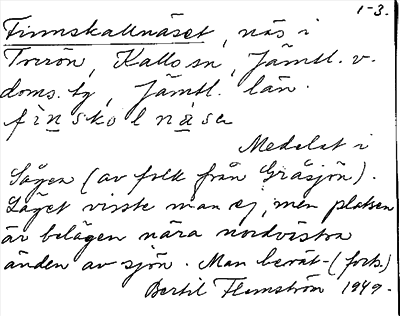 1-3.
Finnskallnäset, näs i
Torrön, Kall sn, Jämtl. v.
doms. tg, Jämtl. län.
fìnskolnäsa
Medelat i
Sågen (av folk från Gräsjön).
Läget visste man ej, men platsen
är belägen nära nordvästra
änden av sjön. Man berät- (forts.)
Bertil Flemström 1949.